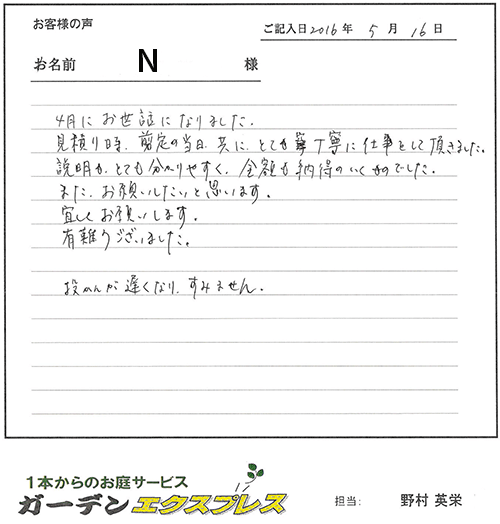 お客様の声
ご記入日2016年 5月 16日
お名前 N 様
4月にお世話になりました。
見積り時、剪定の当日、共に、とても丁寧に仕事をして頂きました。
説明も、とても分かりやすく、金額も納得のいくものでした。
また、お願いしたいと思います。
宜しくお願いします。
有難うございました。
投かんが遅くなり、すみません。
1本からのお庭サービス
ガーデンエクスプレス
担当: 野村 英栄